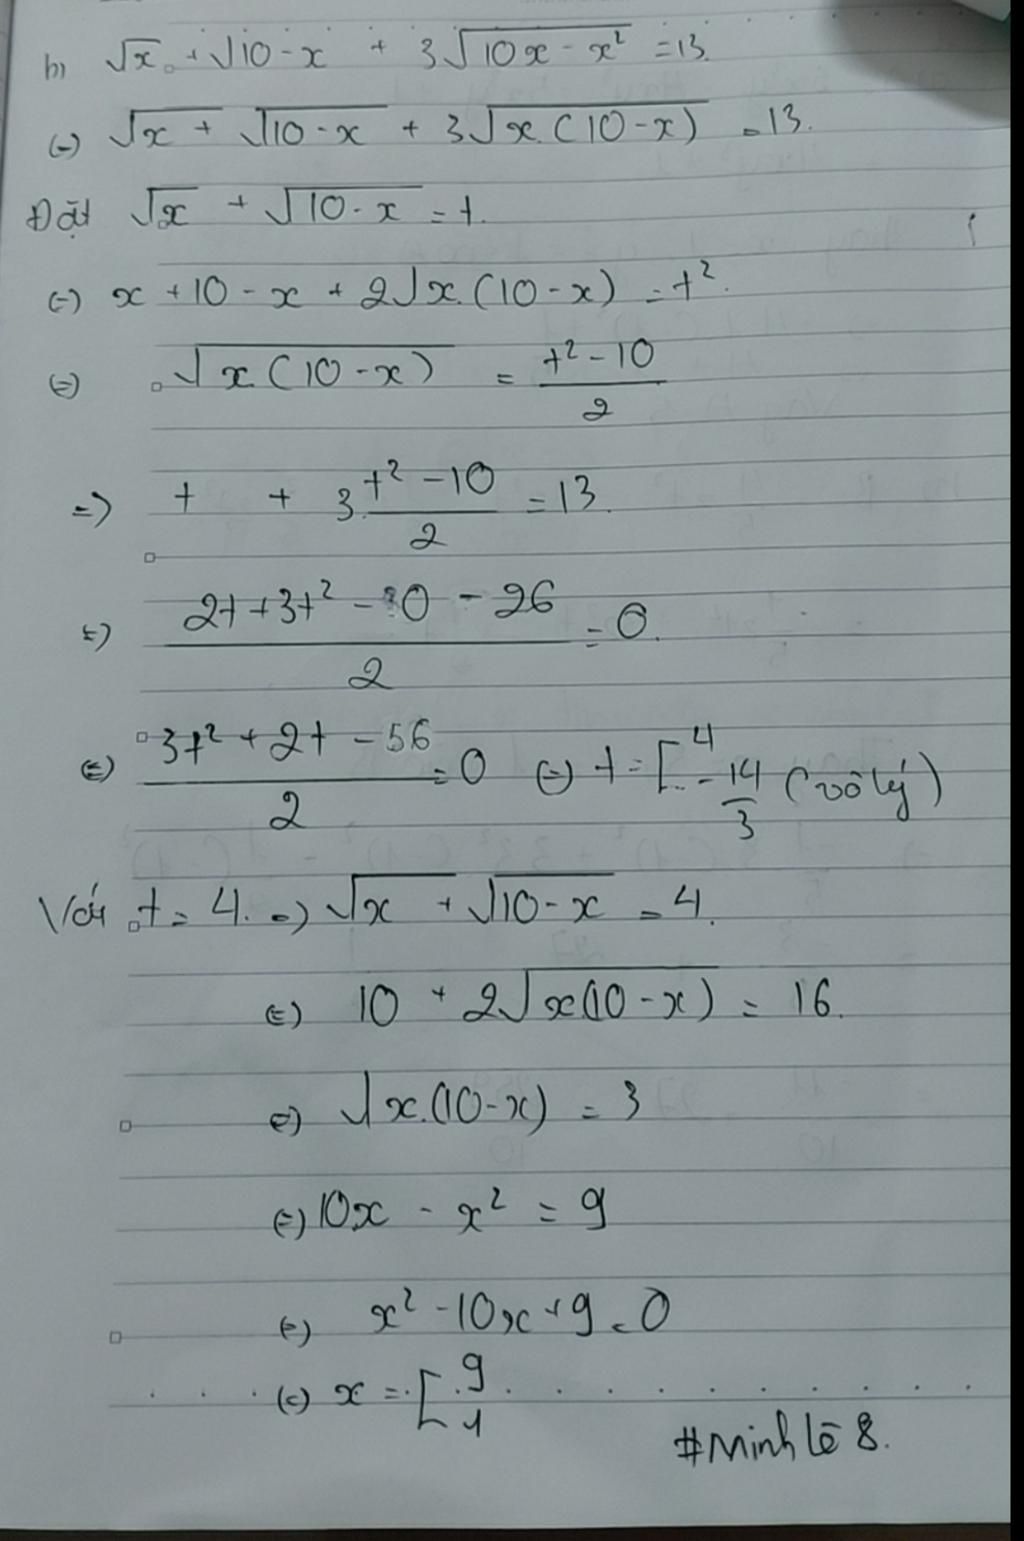 b) √x + √10-x + 3√10x - x² = 13.
(=) √x + √10-x + 3√x.(10-x) = 13.
Đặt √x + √10-x = t.
(=) x + 10 - x + 2√x.(10-x) = t².
(=) √x(10-x) = t² - 10 / 2
=) t + 3. t² - 10 / 2 = 13.
(=) 2t + 3t² - 30 - 26 / 2 = 0.
(=) 3t² + 2t - 56 / 2 = 0 (=) t = [ 4 - 14/3 (vô lý)
Với t = 4. =) √x + √10-x = 4.
(=) 10 + 2√x(10-x) = 16.
(=) √x.(10-x) = 3
(=) 10x - x² = 9
(=) x² - 10x + 9 = 0
(=) x = [ 9 1
#Minh lê 8.